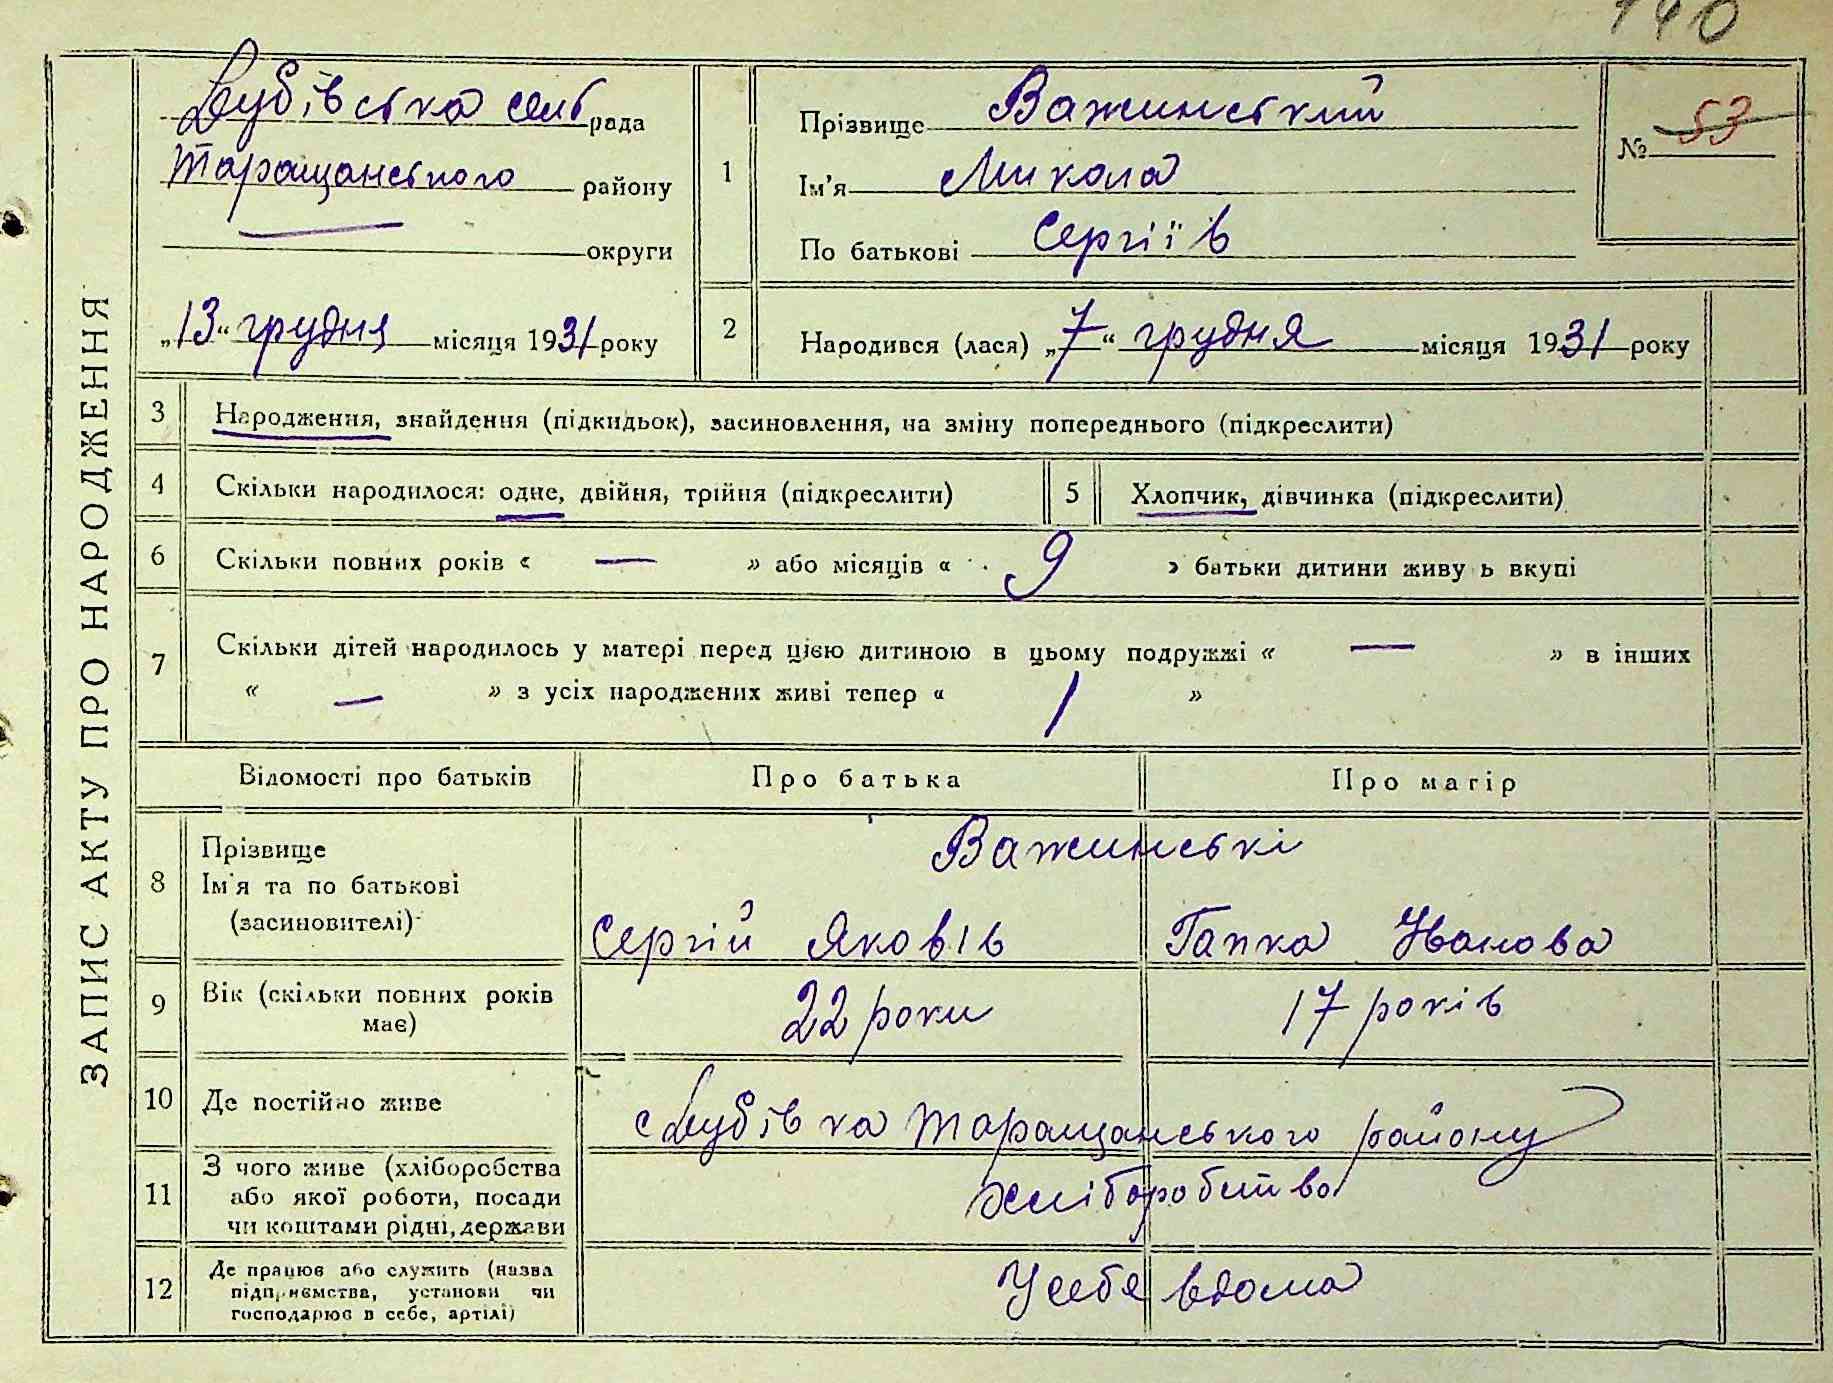 140
ЗАПИС АКТУ ПРО НАРОДЖЕННЯ
Дубівська сельрада
Таращанського району
— округи
„13“ грудня місяця 1931 року
1
Прізвище Важинський
Ім'я Микола
По батькові Сергіїв
№ 53
2 Народився (лася) „7“ грудня місяця 1931 року
3 Народження, знайдення (підкидьок), засиновлення, на зміну попереднього (підкреслити)
4 Скільки народилося: одне, двійня, трійня (підкреслити) 5 Хлопчик, дівчинка (підкреслити)
6 Скільки повних років « — » або місяців « 9 » батьки дитини живу ь вкупі
7 Скільки дітей народилось у матері перед цією дитиною в цьому подружжі « — » в інших
« — » з усіх народжених живі тепер « 1 »
Відомості про батьків Про батька Про матір
8 Прізвище Важинські
Ім'я та по батькові
(засиновителі) Сергій Яковів Гапка Иванова
9 Вік (скільки повних років
має) 22 роки 17 років
10 Де постійно живе с Дубівка Таращанського району
11 З чого живе (хліборобства
або якої роботи, посади
чи коштами рідні, держави хліборобство
12 Де працює або служить (назва
підприємства, установи чи
господарює в себе, артілі) У себе вдома